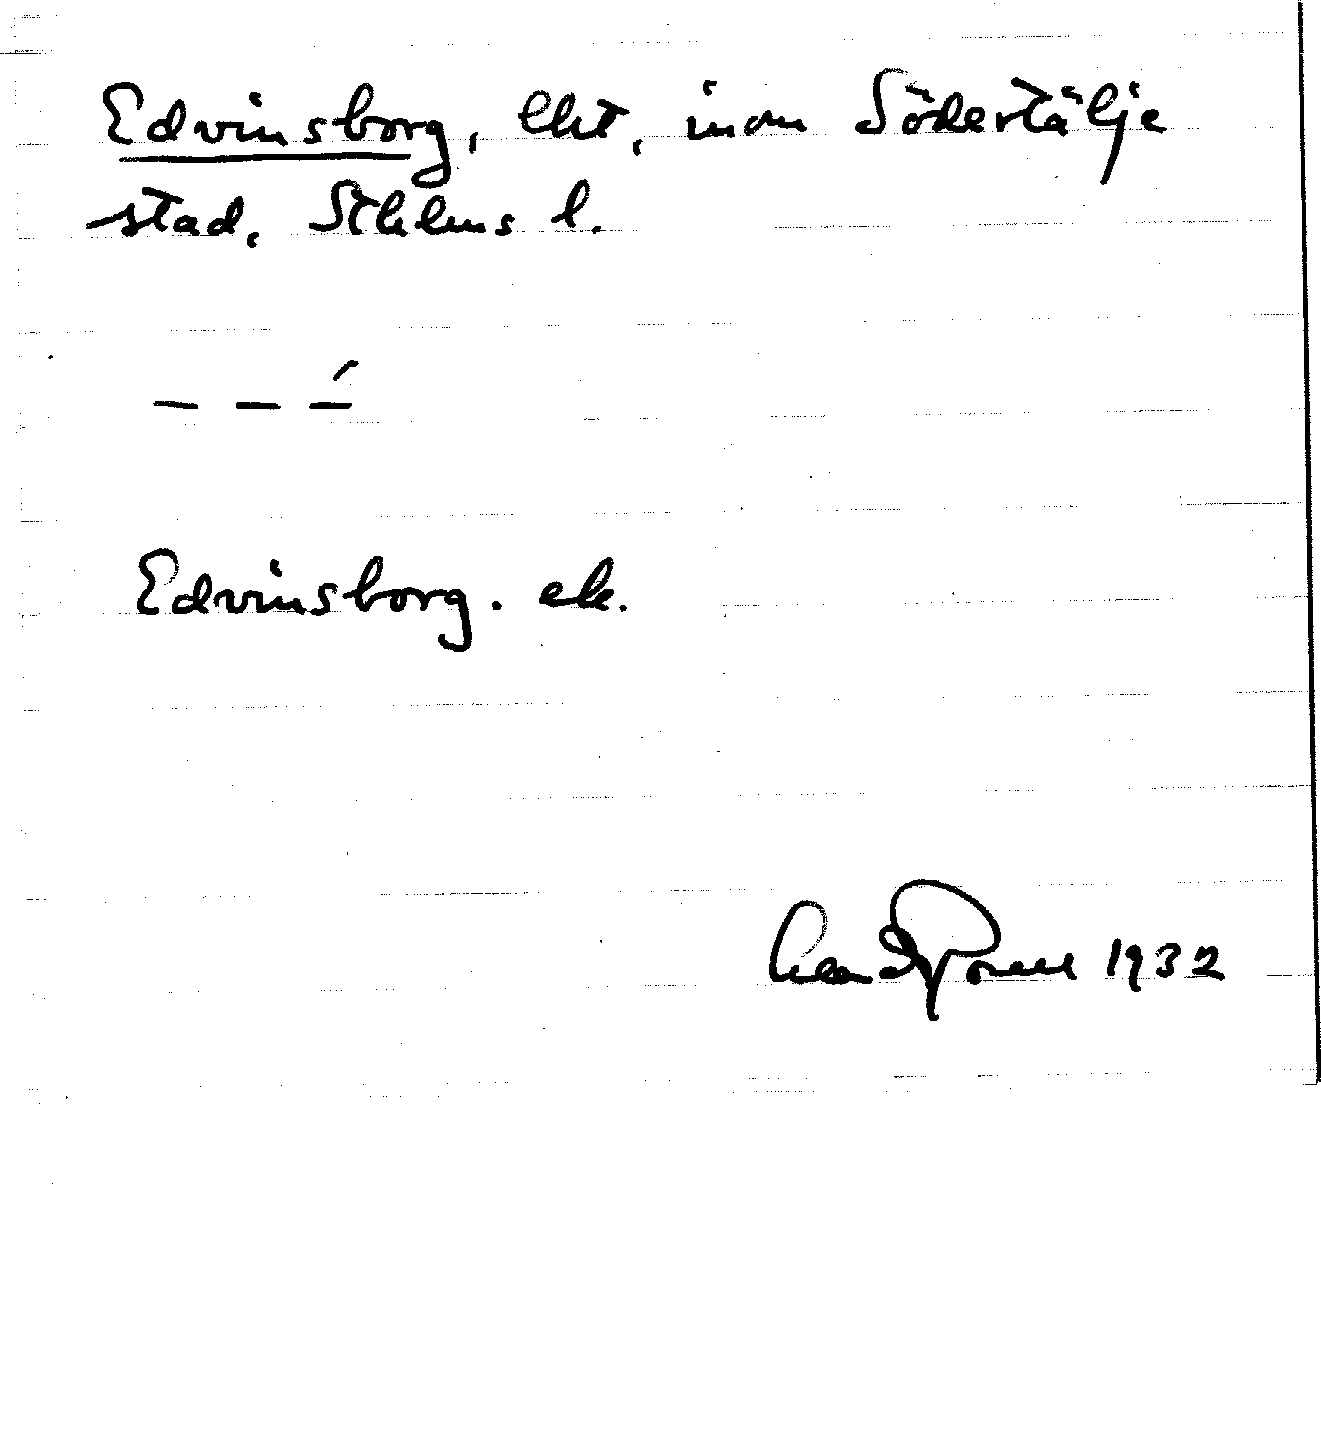 Edvinsborg, lht, inom Södertälje
stad, Sthlms l.
– – –́
Edvinsborg. ek.
1932